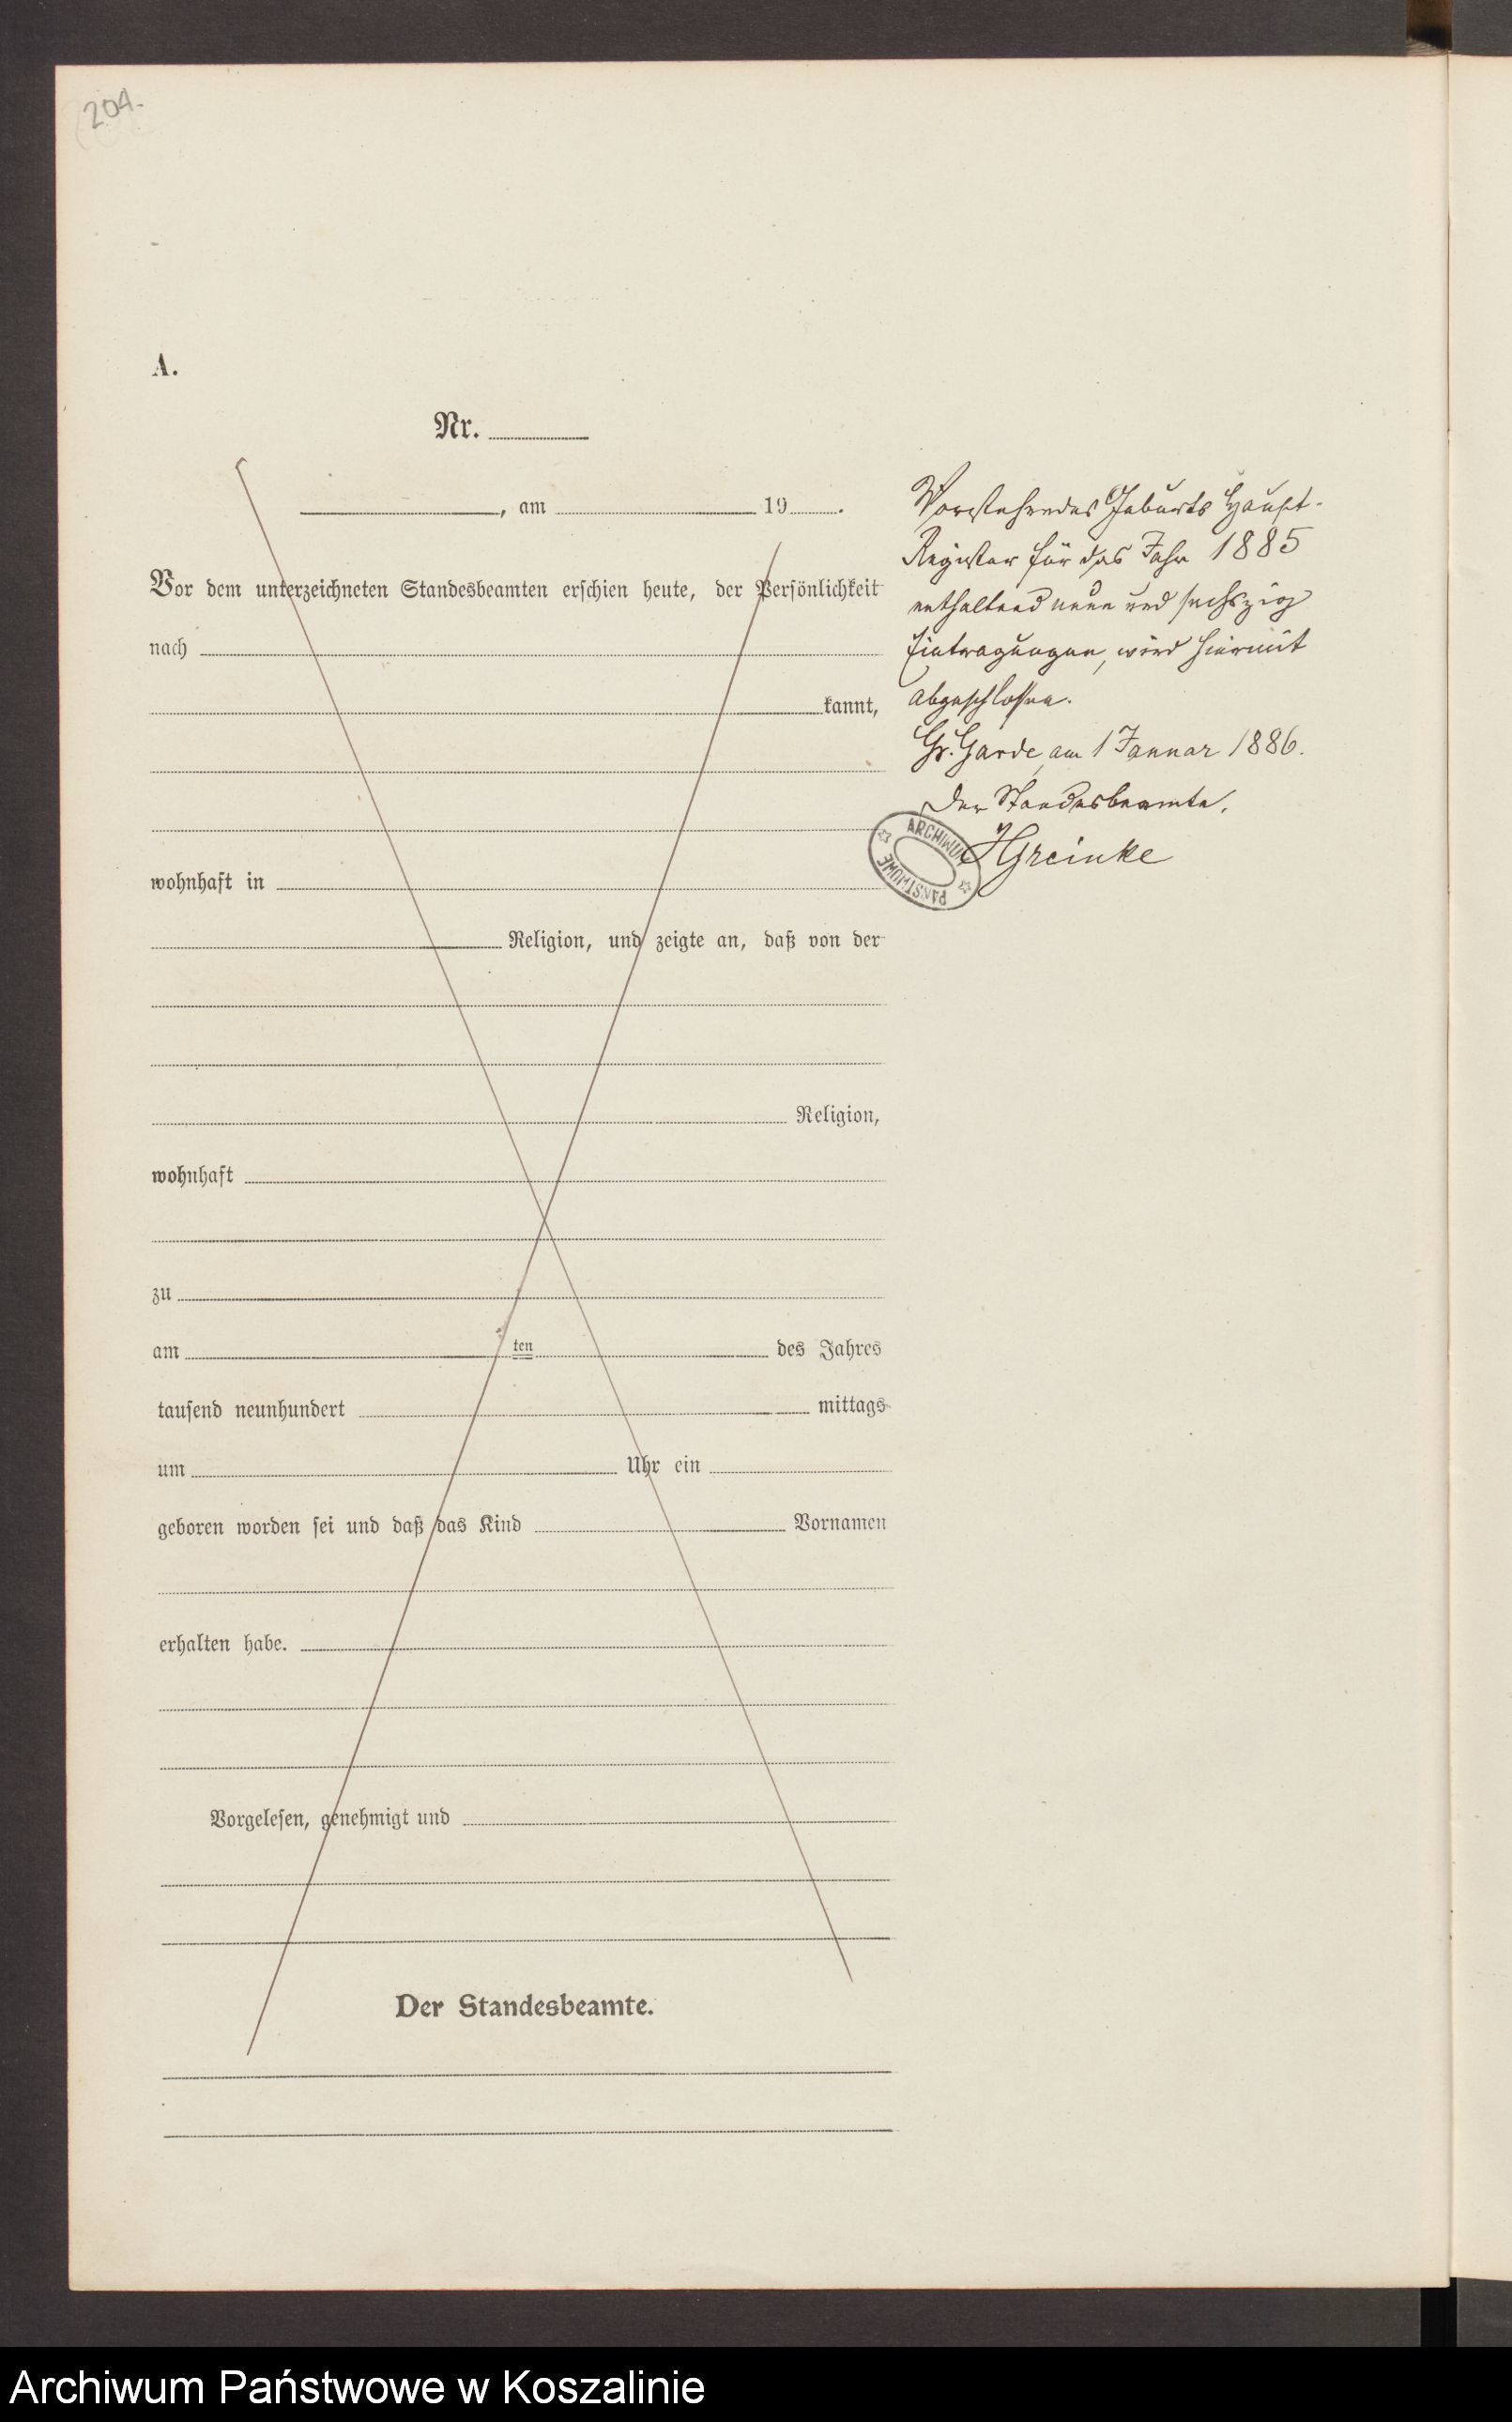 204.
A.
Nr.
, am 19 .
Vor dem unterzeichneten Standesbeamten erschien heute, der Persönlichkeit
nach
kannt,
wohnhaft in
Religion, und zeigte an, daß von der
Religion,
wohnhaft
zu
am ten des Jahres
tausend neunhundert mittags
um Uhr ein
geboren worden sei und daß das Kind Vornamen
erhalten habe.
Vorgelesen, genehmigt und
Der Standesbeamte.
Vorstehendes Geburts Haupt-
Register für das Jahr 1885
enthaltend neun und sechszig
Eintragungen, wird hiermit
abgeschlossen.
Gr. Garde, am 1 Januar 1886.
Der Standesbeamte.
HGreinke
ARCHIWUM
PAŃSTWOWE
Archiwum Państwowe w Koszalinie